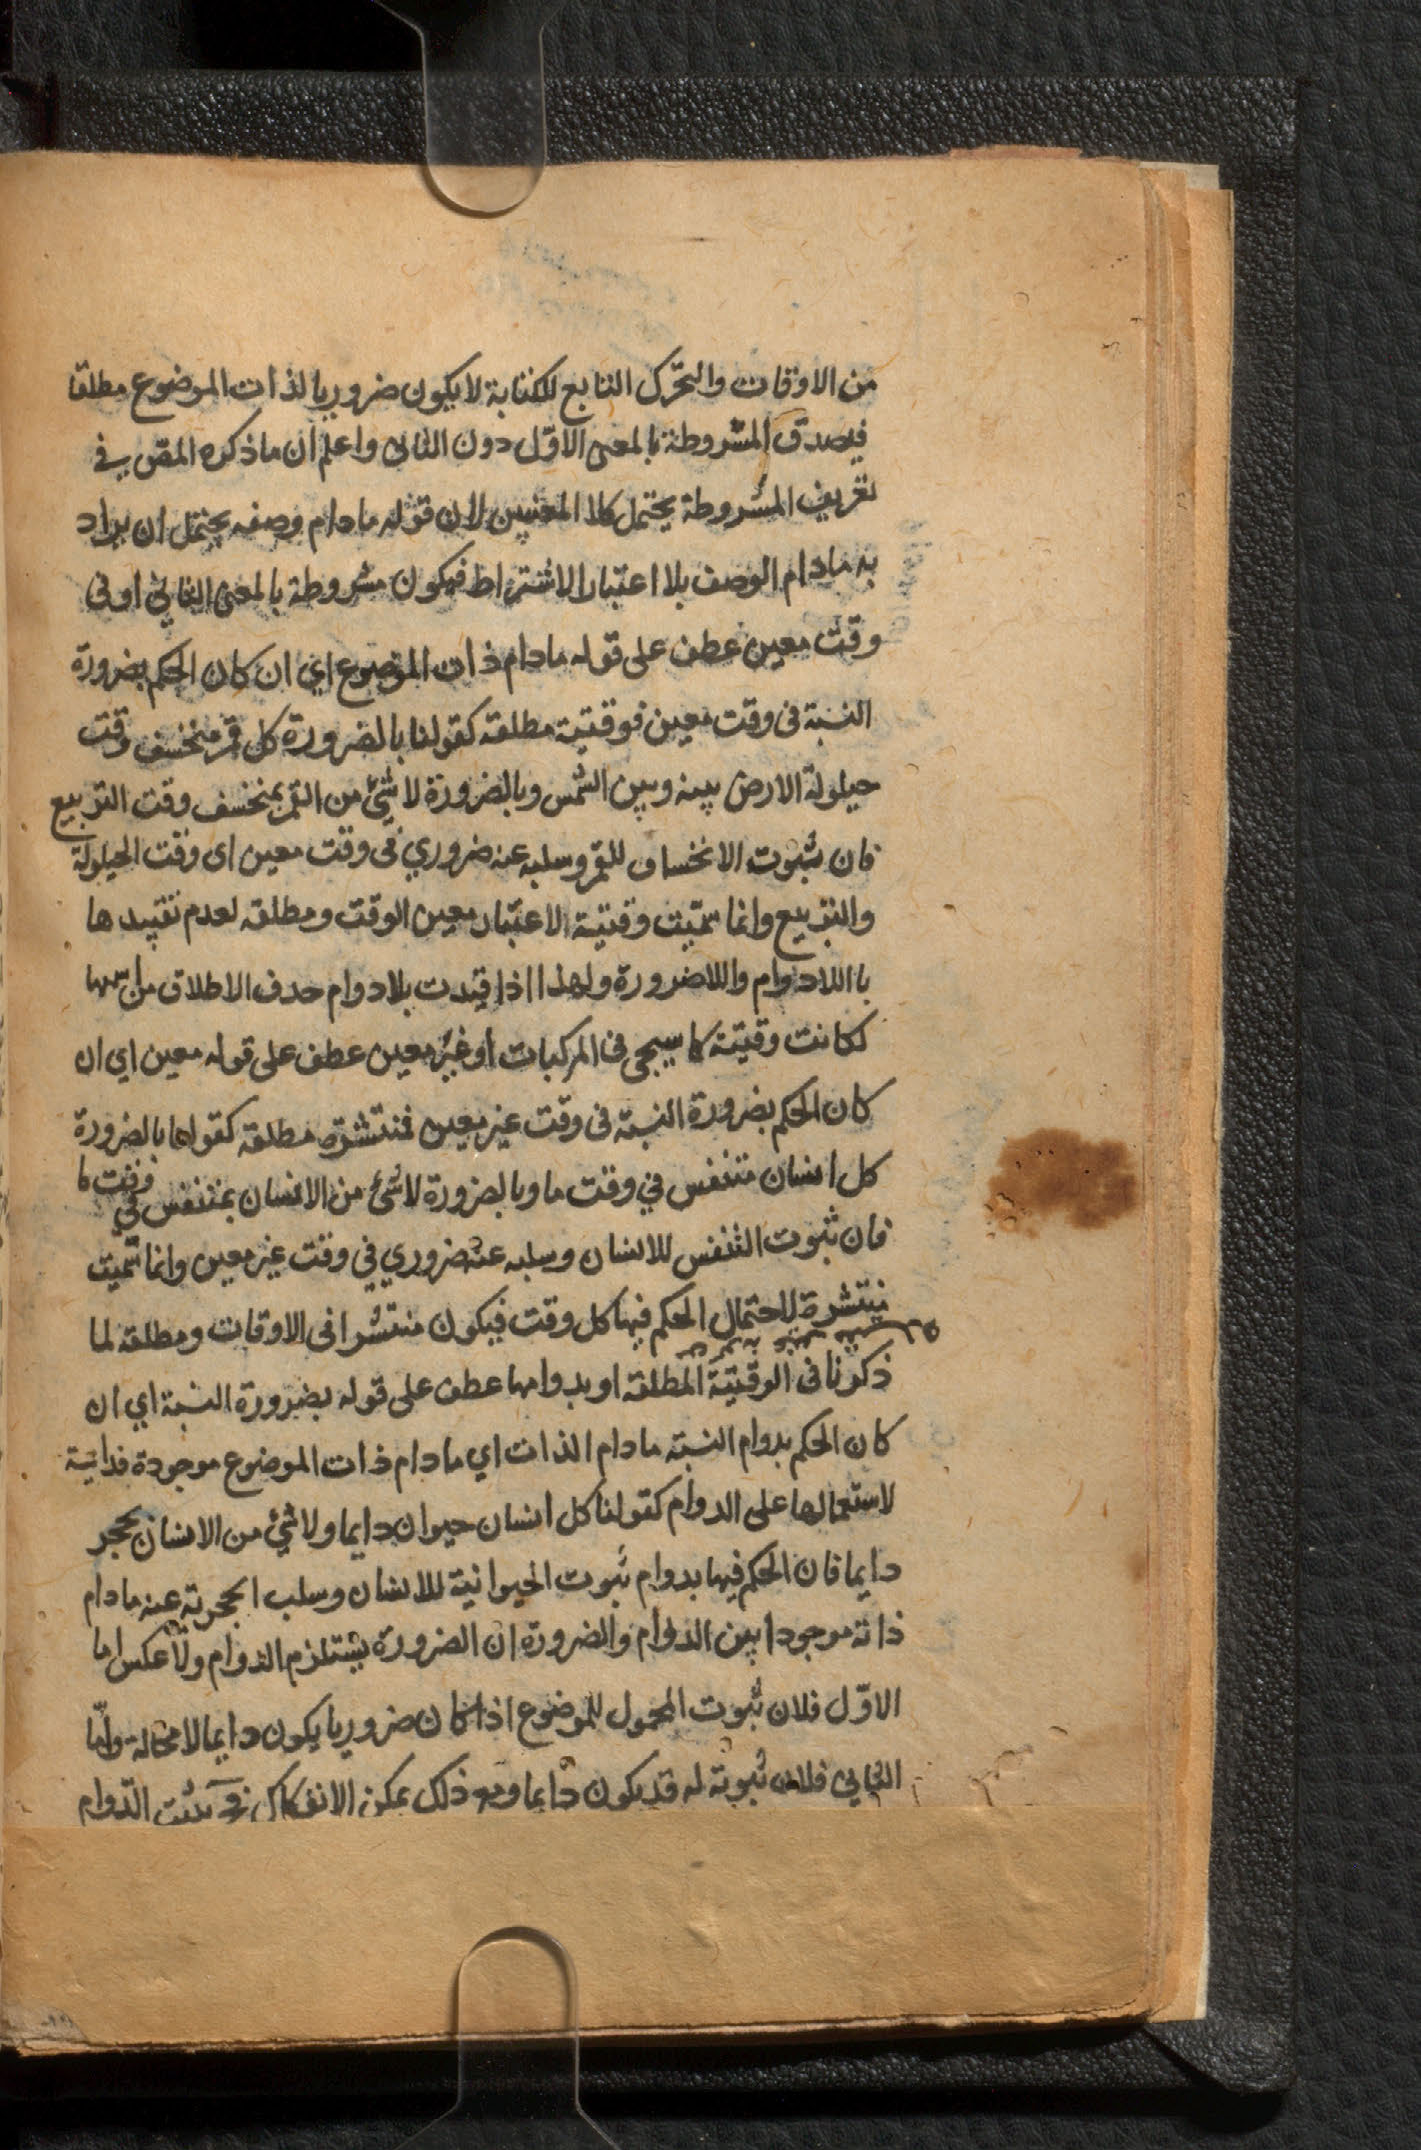 من الاوقات والتحرّك التابع للكتابة لا يكون ضروريا لذات الموضوع مطلقا
فيصدق المشروطة بالمعنى الاوّل دون الثانى واعلم ان ما ذكره المقس في
تعريف المشروطة يحتمل كلا المعنيين لان قوله مادام وصفه يحتمل ان يراد
به مادام الوصف بلا اعتبار الاشتراط فيكون مشروطة بالمعنى الثاني او في
وقت معين عطف على قوله مادام ذات الموضوع اي ان كان الحكم بضرورة
النسبة في وقت معين فوقتية مطلقة كقولنا بالضرورة كل قمر منخسف وقت
حيلولة الارض بينه وبين الشمس وبالضرورة لا شئ من القمر بمنخسف وقت التربيع
فان ثبوت الانخساف للقمر وسلبه عنه ضروري في وقت معين اى وقت الحيلولة
والتربيع وانما سمّيت وقتية لاعتبار معين الوقت ومطلقه لعدم تقييدها
با اللادوام واللاضرورة ولهذا اذا قيّدت بلادوام حدف الاطلاق من اسمها
ككانت وقيتة كما سيجى فى المركبات او غير معين عطف على قوله معين اي ان
كان الحكم بضرورة النسبة فى وقت غير معين فمنتشرة مطلقه كقولهما بالضرورة
كل انسان متنفس في وقت ما وبالضرورة لا شئ من الانسان بمتنفس في وقت ما
فان ثبوت التنفس للانسان وسلبه عنه ضروري في وقت غير معين وانما سمّيت
منتشرة لاحتمال الحكم فيها كل وقت فيكون منتشرا فى الاوقات ومطلقه لما
ذكرنا فى الوقتية المطلقه او بدوامها عطف على قوله بضرورة النسبة اي ان
كان الحكم بدوام النسبة مادام الذات اي مادام ذات الموضوع موجودة فدائية
لاستعمالها على الدوام كقولنا كل انسان حيوان دايما ولا شئ من الانسان بحجر
دايما فان الحكم فيها بدوام ثبوت الحيوانية للانسان وسلب الحجرية عنه مادام
ذاته موجودا بين الدوام والضرورة ان الضرورة يستلزم الدوام ولا عكس اما
الاوّل فلان ثبوت المحمول للموضوع اذا كان ضروريا يكون دايما لا محالة وامّا
الثاني فلان ثبوته له قد يكون دايما ومع ذلك يمكن الانفكاك الدّوام